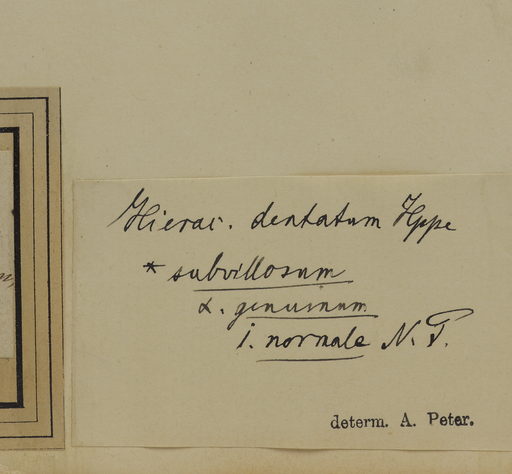 Hierac. dentatum Hppe
* subvillosum
α. genuinum
1. normale N. P.
determ. A. Peter.